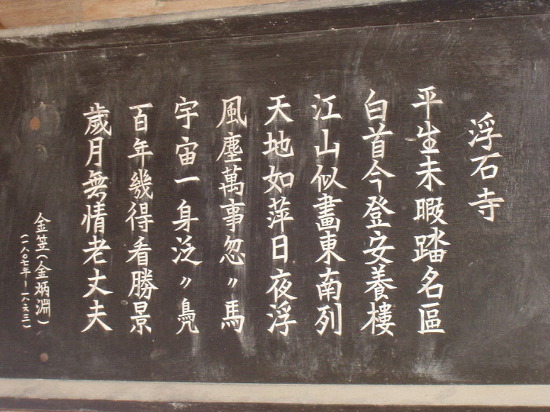 浮石寺
平生未暇踏名區
白首今登安養樓
江山似畵東南列
天地如萍日夜浮
風塵萬事忽〃馬
宇宙一身泛〃鳧
百年幾得看勝景
歲月無情老丈夫
金笠(金炳淵)
(一八〇七年~一八六三)